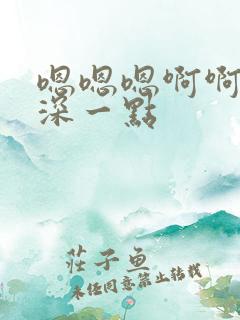 嗯嗯嗯啊啊
深一點
莊子魚
未经同意禁止转载